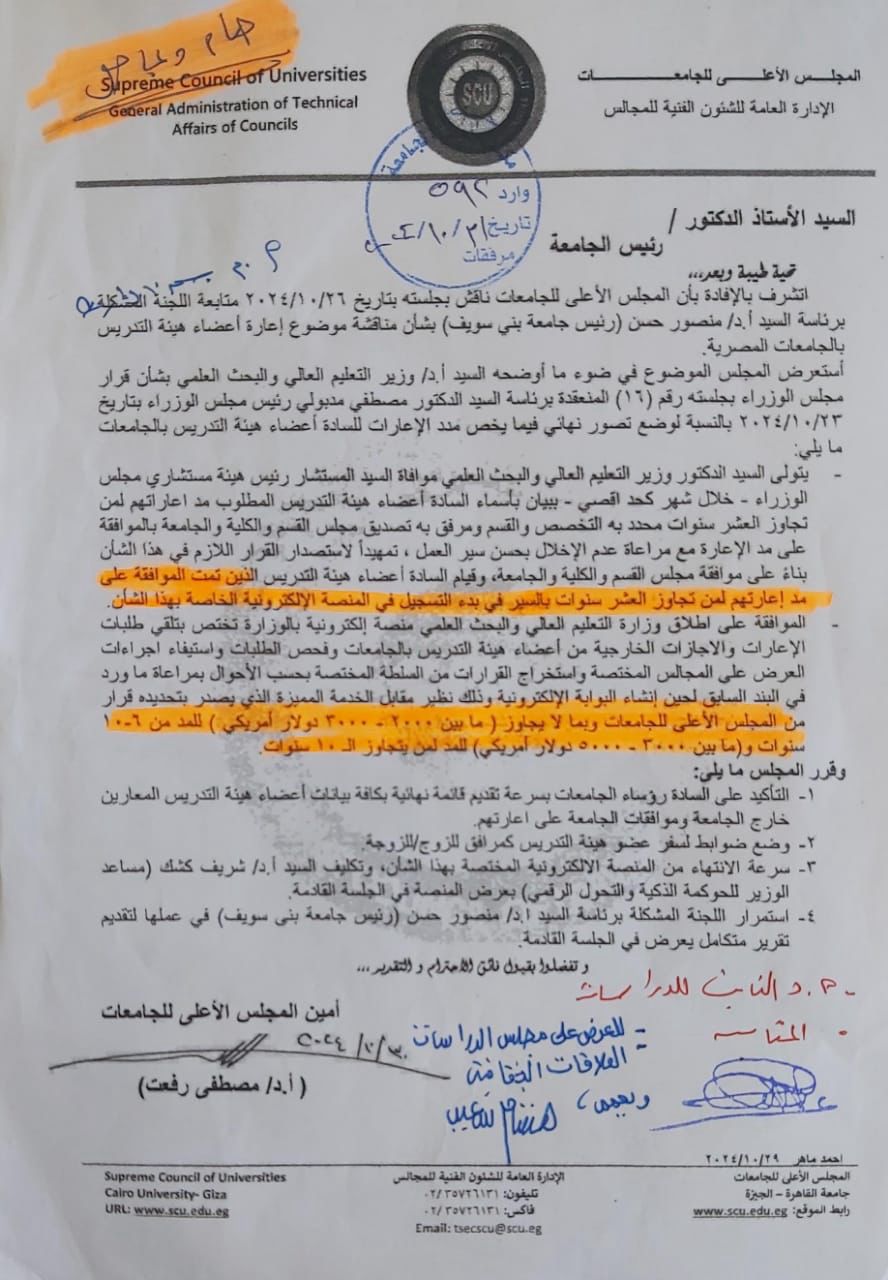 هام وعاجل
Supreme Council of Universities
General Administration of Technical
Affairs of Councils
SCU
المجلس الأعلى للجامعات
الإدارة العامة للشئون الفنية للمجالس
وارد ٥٩٢
تاريخ ٣١/١٠/
مرفقات
السيد الأستاذ الدكتور /
رئيس الجامعة
تحية طيبة وبعد،،،
اتشرف بالإفادة بأن المجلس الأعلى للجامعات ناقش بجلسته بتاريخ ٢٠٢٤/١٠/٢٦ متابعة اللجنة المشكلة
برئاسة السيد أ.د/ منصور حسن (رئيس جامعة بني سويف) بشأن مناقشة موضوع إعارة أعضاء هيئة التدريس
بالجامعات المصرية.
أستعرض المجلس الموضوع في ضوء ما أوضحه السيد أ.د/ وزير التعليم العالي والبحث العلمي بشأن قرار
مجلس الوزراء بجلسته رقم (١٦) المنعقدة برئاسة السيد الدكتور مصطفي مدبولي رئيس مجلس الوزراء بتاريخ
٢٠٢٤/١٠/٢٣ بالنسبة لوضع تصور نهائي فيما يخص مدد الإعارات للسادة أعضاء هيئة التدريس بالجامعات
ما يلي:
- يتولى السيد الدكتور وزير التعليم العالي والبحث العلمي موافاة السيد المستشار رئيس هيئة مستشاري مجلس
الوزراء - خلال شهر كحد اقصي - ببيان بأسماء السادة أعضاء هيئة التدريس المطلوب مد اعاراتهم لمن
تجاوز العشر سنوات محدد به التخصص والقسم ومرفق به تصديق مجلس القسم والكلية والجامعة بالموافقة
على مد الإعارة مع مراعاة عدم الإخلال بحسن سير العمل ، تمهيداً لاستصدار القرار اللازم في هذا الشأن
بناءً على موافقة مجلس القسم والكلية والجامعة، وقيام السادة أعضاء هيئة التدريس الذين تمت الموافقة على
مد إعارتهم لمن تجاوز العشر سنوات بالسير في بدء التسجيل في المنصة الإلكترونية الخاصة بهذا الشأن.
- الموافقة على اطلاق وزارة التعليم العالي والبحث العلمي منصة إلكترونية بالوزارة تختص بتلقي طلبات
الإعارات والاجازات الخارجية من أعضاء هيئة التدريس بالجامعات وفحص الطلبات واستيفاء اجراءات
العرض على المجالس المختصة واستخراج القرارات من السلطة المختصة بحسب الأحوال بمراعاة ما ورد
في البند السابق لحين إنشاء البوابة الإلكترونية وذلك نظير مقابل الخدمة المميزة الذي يصدر بتحديده قرار
من المجلس الأعلى للجامعات وبما لا يجاوز ( ما بين ٢٠٠٠ - ٣٠٠٠ دولار أمريكي ) للمد من ٦-١٠
سنوات و(ما بين ٣٠٠٠ - ٥٠٠٠ دولار أمريكي) للمد لمن يتجاوز الـ ١٠ سنوات.
وقرر المجلس ما يلى:
١- التأكيد على السادة رؤساء الجامعات بسرعة تقديم قائمة نهائية بكافة بيانات أعضاء هيئة التدريس المعارين
خارج الجامعة وموافقات الجامعة على اعارتهم.
٢- وضع ضوابط لسفر عضو هيئة التدريس كمرافق للزوج/للزوجة.
٣- سرعة الانتهاء من المنصة الالكترونية المختصة بهذا الشأن، وتكليف السيد أ.د/ شريف كشك (مساعد
الوزير للحوكمة الذكية والتحول الرقمي) بعرض المنصة في الجلسة القادمة.
٤- استمرار اللجنة المشكلة برئاسة السيد ا.د/ منصور حسن (رئيس جامعة بنى سويف) في عملها لتقديم
تقرير متكامل يعرض في الجلسة القادمة.
وتفضلوا بقبول فائق الاحترام و التقدير،،،
أ.د النائب للدراسات
أمين المجلس الأعلى للجامعات
٢٠٢٤/١٠/٣٠
(أ.د/ مصطفى رفعت)
- للعرض على مجلس الدراسات
العلاقات الثقافية
احمد ماهر ٢٠٢٤/١٠/٢٩
Supreme Council of Universities
Cairo University- Giza
URL: www.scu.edu.eg
الإدارة العامة للشئون الفنية للمجالس
تليفون: ٠٢/٣٥٧٢٦١٣١
فاكس: ٠٢/٣٥٧٢٦١٣١
Email: tsecscu@scu.eg
المجلس الأعلى للجامعات
جامعة القاهرة - الجيزة
رابط الموقع: www.scu.edu.eg